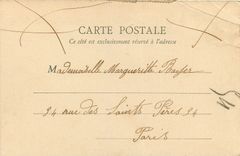 CARTE POSTALE
Ce côté est exclusivement réservé à l'adresse
Mademoiselle Margueritte
24 rue des Saints Pères 24
Paris